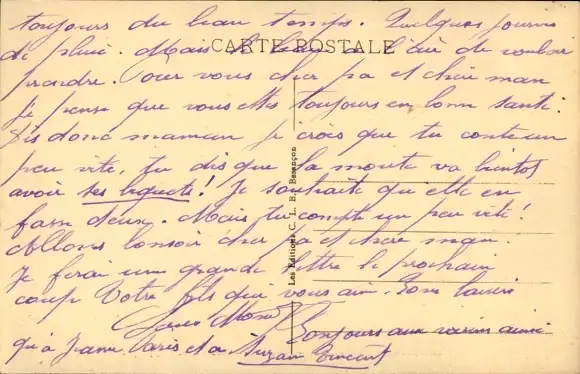 toujours du beau temps. Quelques journées
de pluie. Mais le beau a l'air de vouloir
CARTE POSTALE
prendre. Pour vous cher pa et chère man
je pense que vous êtes toujours en bonne santé.
Dis donc maman je crois que tu compte un
peu vite, tu dis que la moute va bientot
avoir ses biquets! Je souhaite qu'elle en
fasse deux. Mais tu compte un peu vite!
Allons bonsoir cher pa et chère man.
Je ferai une grande lettre le prochain
coup Votre fils qui vous aime. Bons baisers
Bonjours aux voisins ainsi
qu'à Jeanne et a Suzanne Vincent
Les Editions C. L. B. Besançon